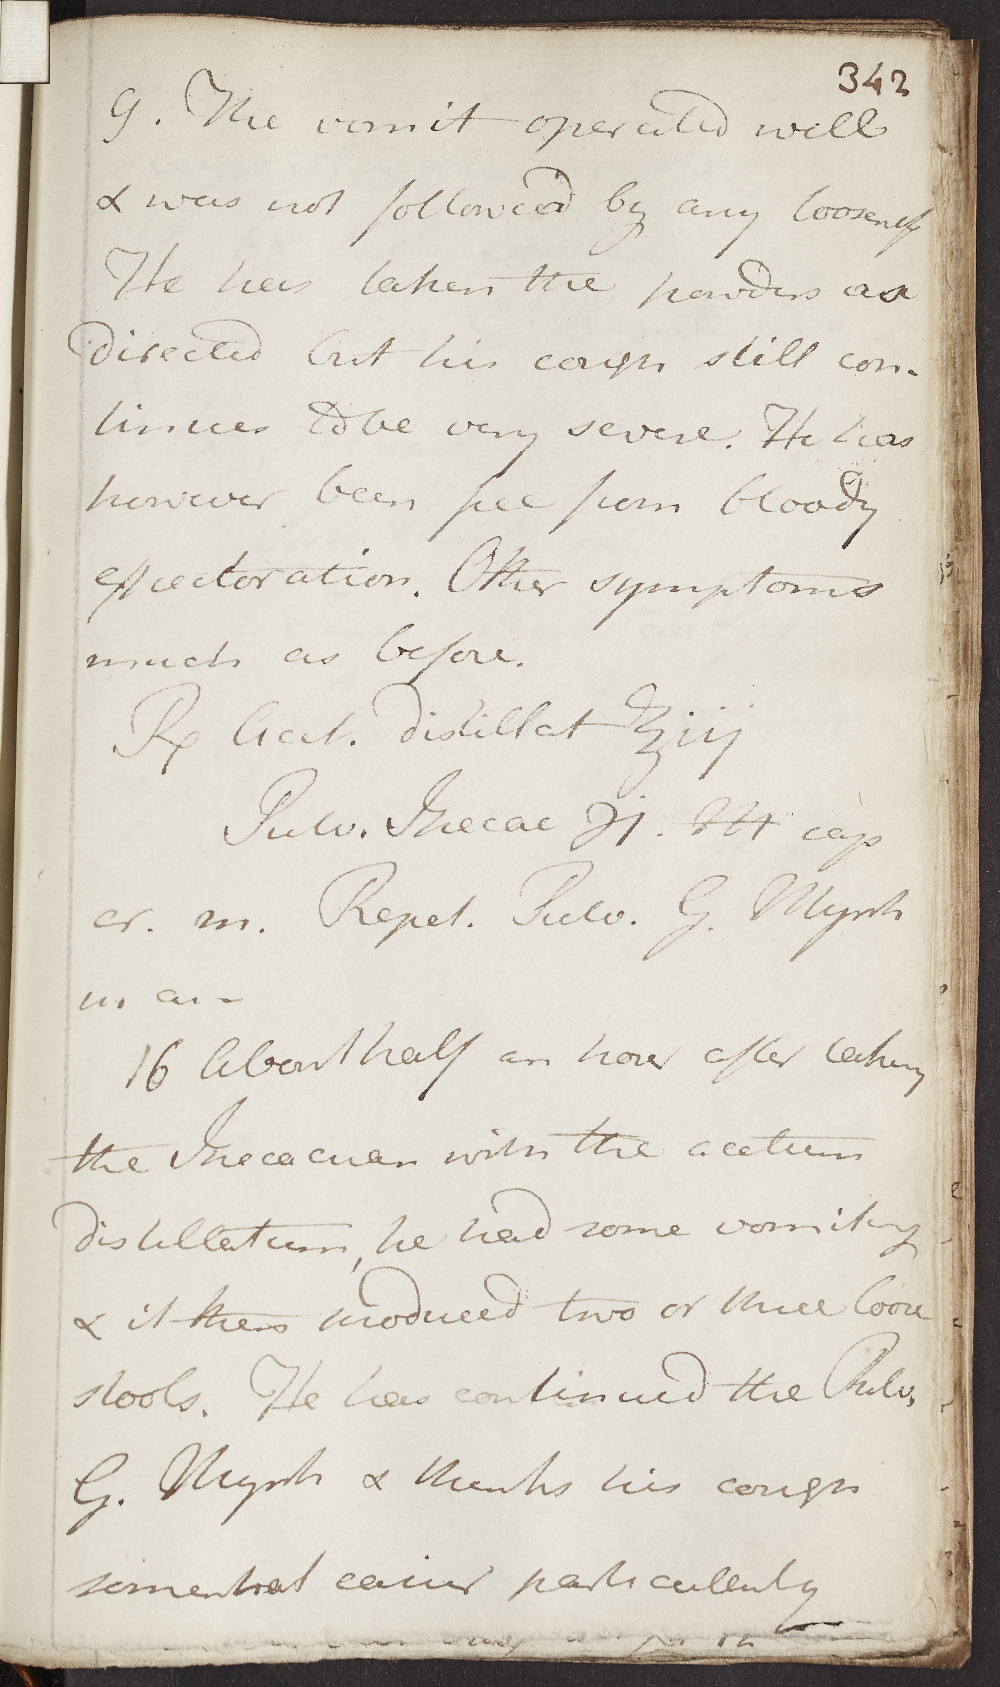 342
9. The vomit operated well
& was not followed by any looseness
He has taken the powders as
directed but his cough still con-
tinues to be very severe. He has
however been free from bloody
expectoration. Other symptoms
much as before.
℞ Acet. distillat ℥iij
Pulv. Ipecac ℈j. M cap
cr. m. Repet. Pulv. G. Myrrh
16 About half an hour after taking
the Ipecacuan with the acetum
distillatum, he had some vomiting
& it then produced two or three loose
stools. He has continued the Pulv.
G. Myrrh & thinks his cough
somewhat easier particularly